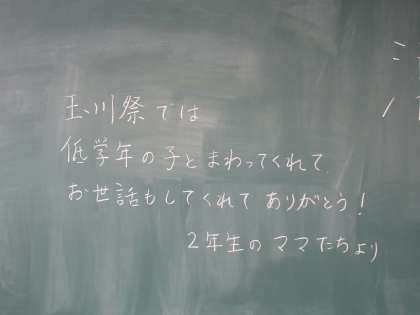 玉川祭では
低学年の子とまわってくれて
お世話もしてくれて ありがとう!
2年生の ママたちより